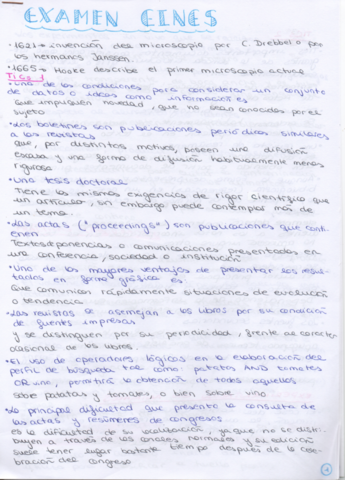 EXAMEN CINES
• 1621 → invención del microscopio por C. Drebbel o por
los hermanos Janssen
• 1665 → Hooke describe el primer microscopio actual
TICs 1
• Una de las condiciones para considerar un conjunto
de datos o ideas como información es
que impliquen novedad, que no sean conocidos por el
sujeto
• Los boletines son publicaciones periódicas similares
a las revistas
que, por distintos motivos, poseen una difusión
escasa y una forma de difusión habitualmente menos
rigurosa
• Una tesis doctoral
Tiene las mismas exigencias de rigor científico que
un artículo, sin embargo puede contemplar más de
un tema.
• Las actas ("proceedings") son publicaciones que conti-
enen
Textos de ponencias o comunicaciones presentadas en
una conferencia, sociedad o institución
• Una de las mayores ventajas de presentar los resul-
tados en forma gráfica es
Que comunican rápidamente situaciones de evolución
o tendencia
• Las revistas se asemejan a los libros por su condición
de fuentes impresas
y se distinguen por su periodicidad, frente al carácter
ocasional de los libros
• El uso de operadores lógicos en la elaboración del
perfil de búsqueda tal como patatas AND tomates
OR vino, permitiría la obtención de todos aquellos
sobre patatas y tomates, o bien sobre vino
• La principal dificultad que presenta la consulta de
las actas y resúmenes de congresos
es la dificultad de su localización, ya que no se distri-
buyen a través de los canales normales y su edición
suele tener lugar bastante tiempo después de la cele-
bración del congreso